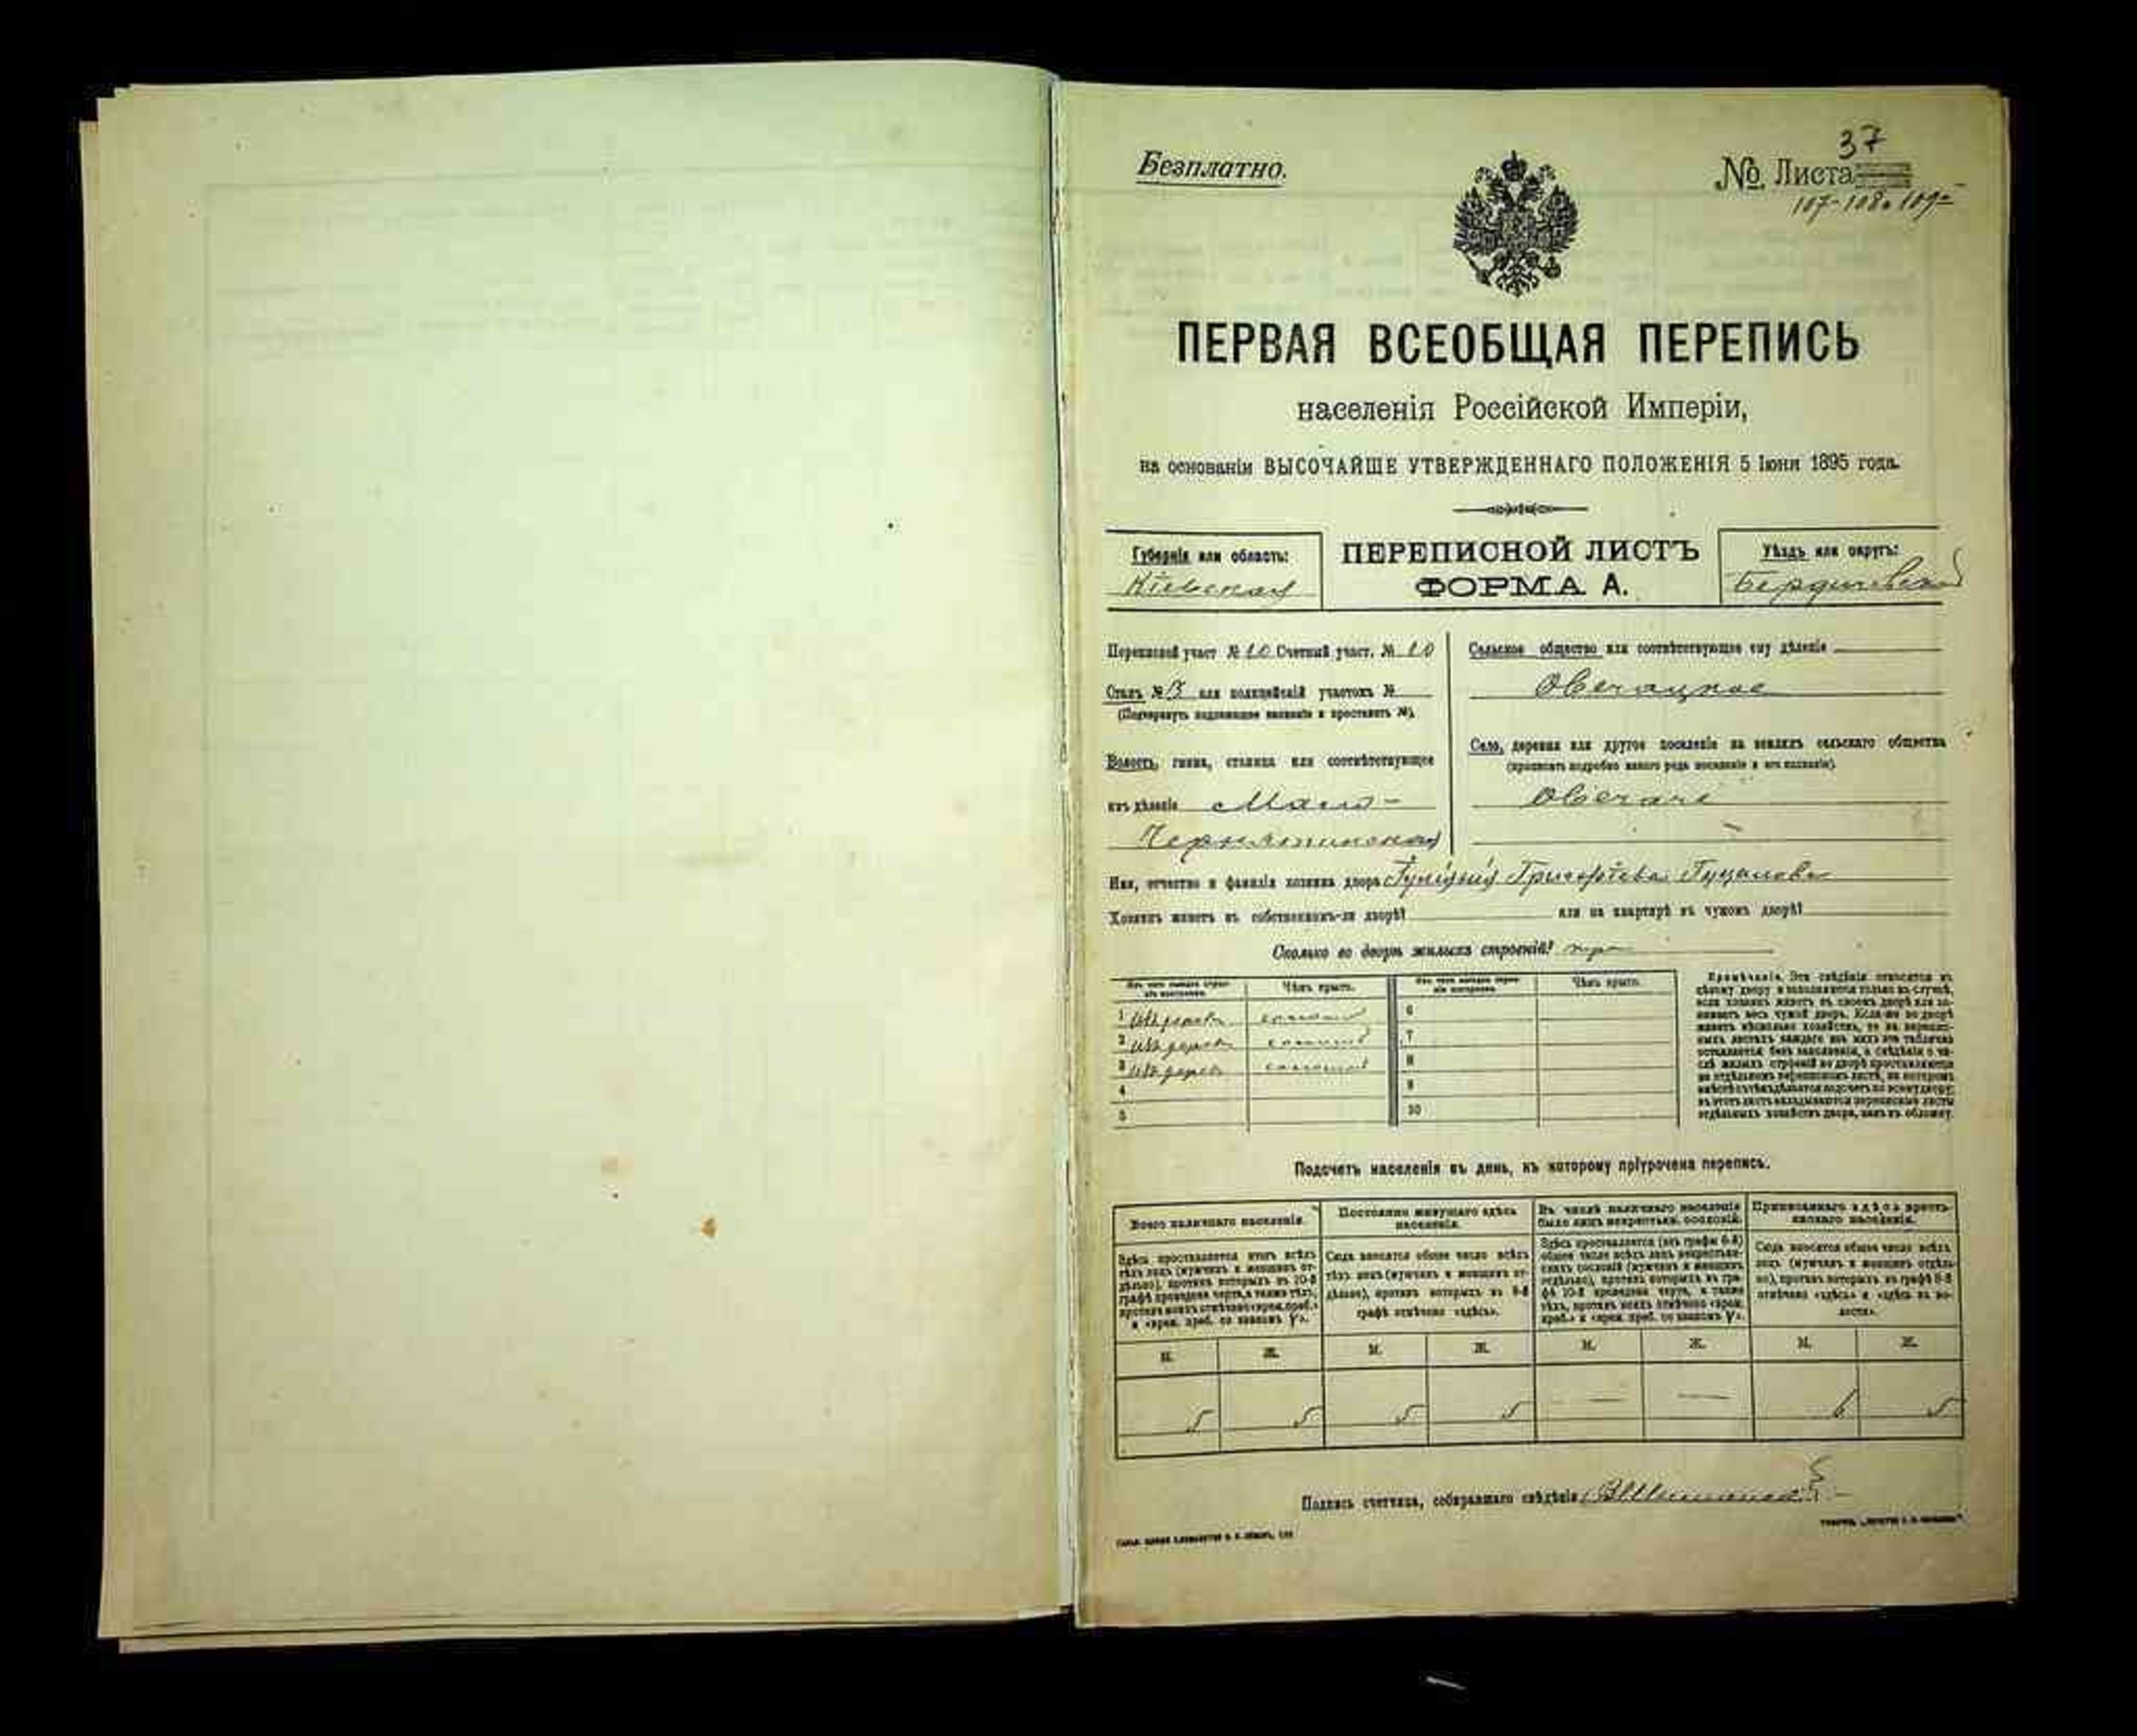 Безплатно.
№ Листа 37
107-108 и 109
ПЕРВАЯ ВСЕОБЩАЯ ПЕРЕПИСЬ
населенія Россійской Имперіи,
на основаніи ВЫСОЧАЙШЕ УТВЕРЖДЕННАГО ПОЛОЖЕНІЯ 5 Іюня 1895 года.
Губернія или область:
Кіевская
ПЕРЕПИСНОЙ ЛИСТЪ
ФОРМА А.
Уѣздъ или округъ:
Бердичевскій
Переписной участ. № 10 Счетный участ. № 10
Станъ № 3 или полицейскій участокъ №
(Подчеркнуть надлежащее названіе и проставить №).
Волость, гмина, станица или соотвѣтствующее
имъ дѣленіе Мало-
Чернятинская
Сельское общество или соотвѣтствующее ему дѣленіе
Овечацкое
Село, деревня или другое поселеніе на земляхъ сельскаго общества
(прописать подробно какого рода поселеніе и его названіе).
Овечачі
Имя, отчество и фамилія хозяина двора Григорьева
Хозяинъ живетъ въ собственномъ-ли дворѣ? или на квартирѣ въ чужомъ дворѣ?
Сколько во дворѣ жилыхъ строеній? три
Изъ чего каждое строеніе построено. Чѣмъ крыто. Изъ чего каждое строеніе построено. Чѣмъ крыто.
1 изъ дерева соломой 6
2 изъ дерева соломой 7
3 изъ дерева соломой 8
4 9
5 10
Примѣчаніе. Эти свѣдѣнія относятся къ
цѣлому двору и заполняются только въ случаѣ,
если хозяинъ живетъ въ своемъ дворѣ или за-
нимаетъ весь чужой дворъ. Если-же во дворѣ
живетъ нѣсколько хозяйствъ, то на перепис-
ныхъ листахъ каждаго изъ нихъ эта табличка
оставляется безъ заполненія, а свѣдѣнія о чи-
слѣ жилыхъ строеній во дворѣ проставляются
на отдѣльномъ переписномъ листѣ, на которомъ
вмѣстѣ съ тѣмъ дѣлается подсчетъ по всему двору;
въ этотъ листъ вкладываются переписные листы
отдѣльныхъ хозяйствъ двора, какъ въ обложку.
Подсчетъ населенія въ день, къ которому пріурочена перепись.
Всего наличнаго населенія.
Здѣсь проставляется итогъ всѣхъ
тѣхъ лицъ (мужчинъ и женщинъ от-
дѣльно), противъ которыхъ въ 10-й
графѣ проведена черта, а также тѣхъ,
противъ коихъ отмѣчено «врем. преб.»
и «врем. преб. со знакомъ V».
Постоянно живущаго здѣсь
населенія.
Сюда вносится общее число всѣхъ
тѣхъ лицъ (мужчинъ и женщинъ от-
дѣльно), противъ которыхъ въ 9-й
графѣ отмѣчено «здѣсь».
Въ числѣ наличнаго населенія
было лицъ некрестьян. сословій.
Здѣсь проставляется (изъ графы 6-й)
общее число всѣхъ лицъ некрестьян-
скихъ сословій (мужчинъ и женщинъ
отдѣльно), противъ которыхъ въ гра-
фѣ 10-й проведена черта, а также
тѣхъ, противъ коихъ отмѣчено «врем.
преб.» и «врем. преб. со знакомъ V».
Приписаннаго здѣсь кресть-
янскаго населенія.
Сюда вносится общее число всѣхъ
лицъ (мужчинъ и женщинъ отдѣль-
но), противъ которыхъ въ графѣ 8-й
отмѣчено «здѣсь» и «здѣсь въ во-
лости».
М. Ж. М. Ж. М. Ж. М. Ж.
5 5 5 5 — — 6 5
Подпись счетчика, собиравшаго свѣдѣнія